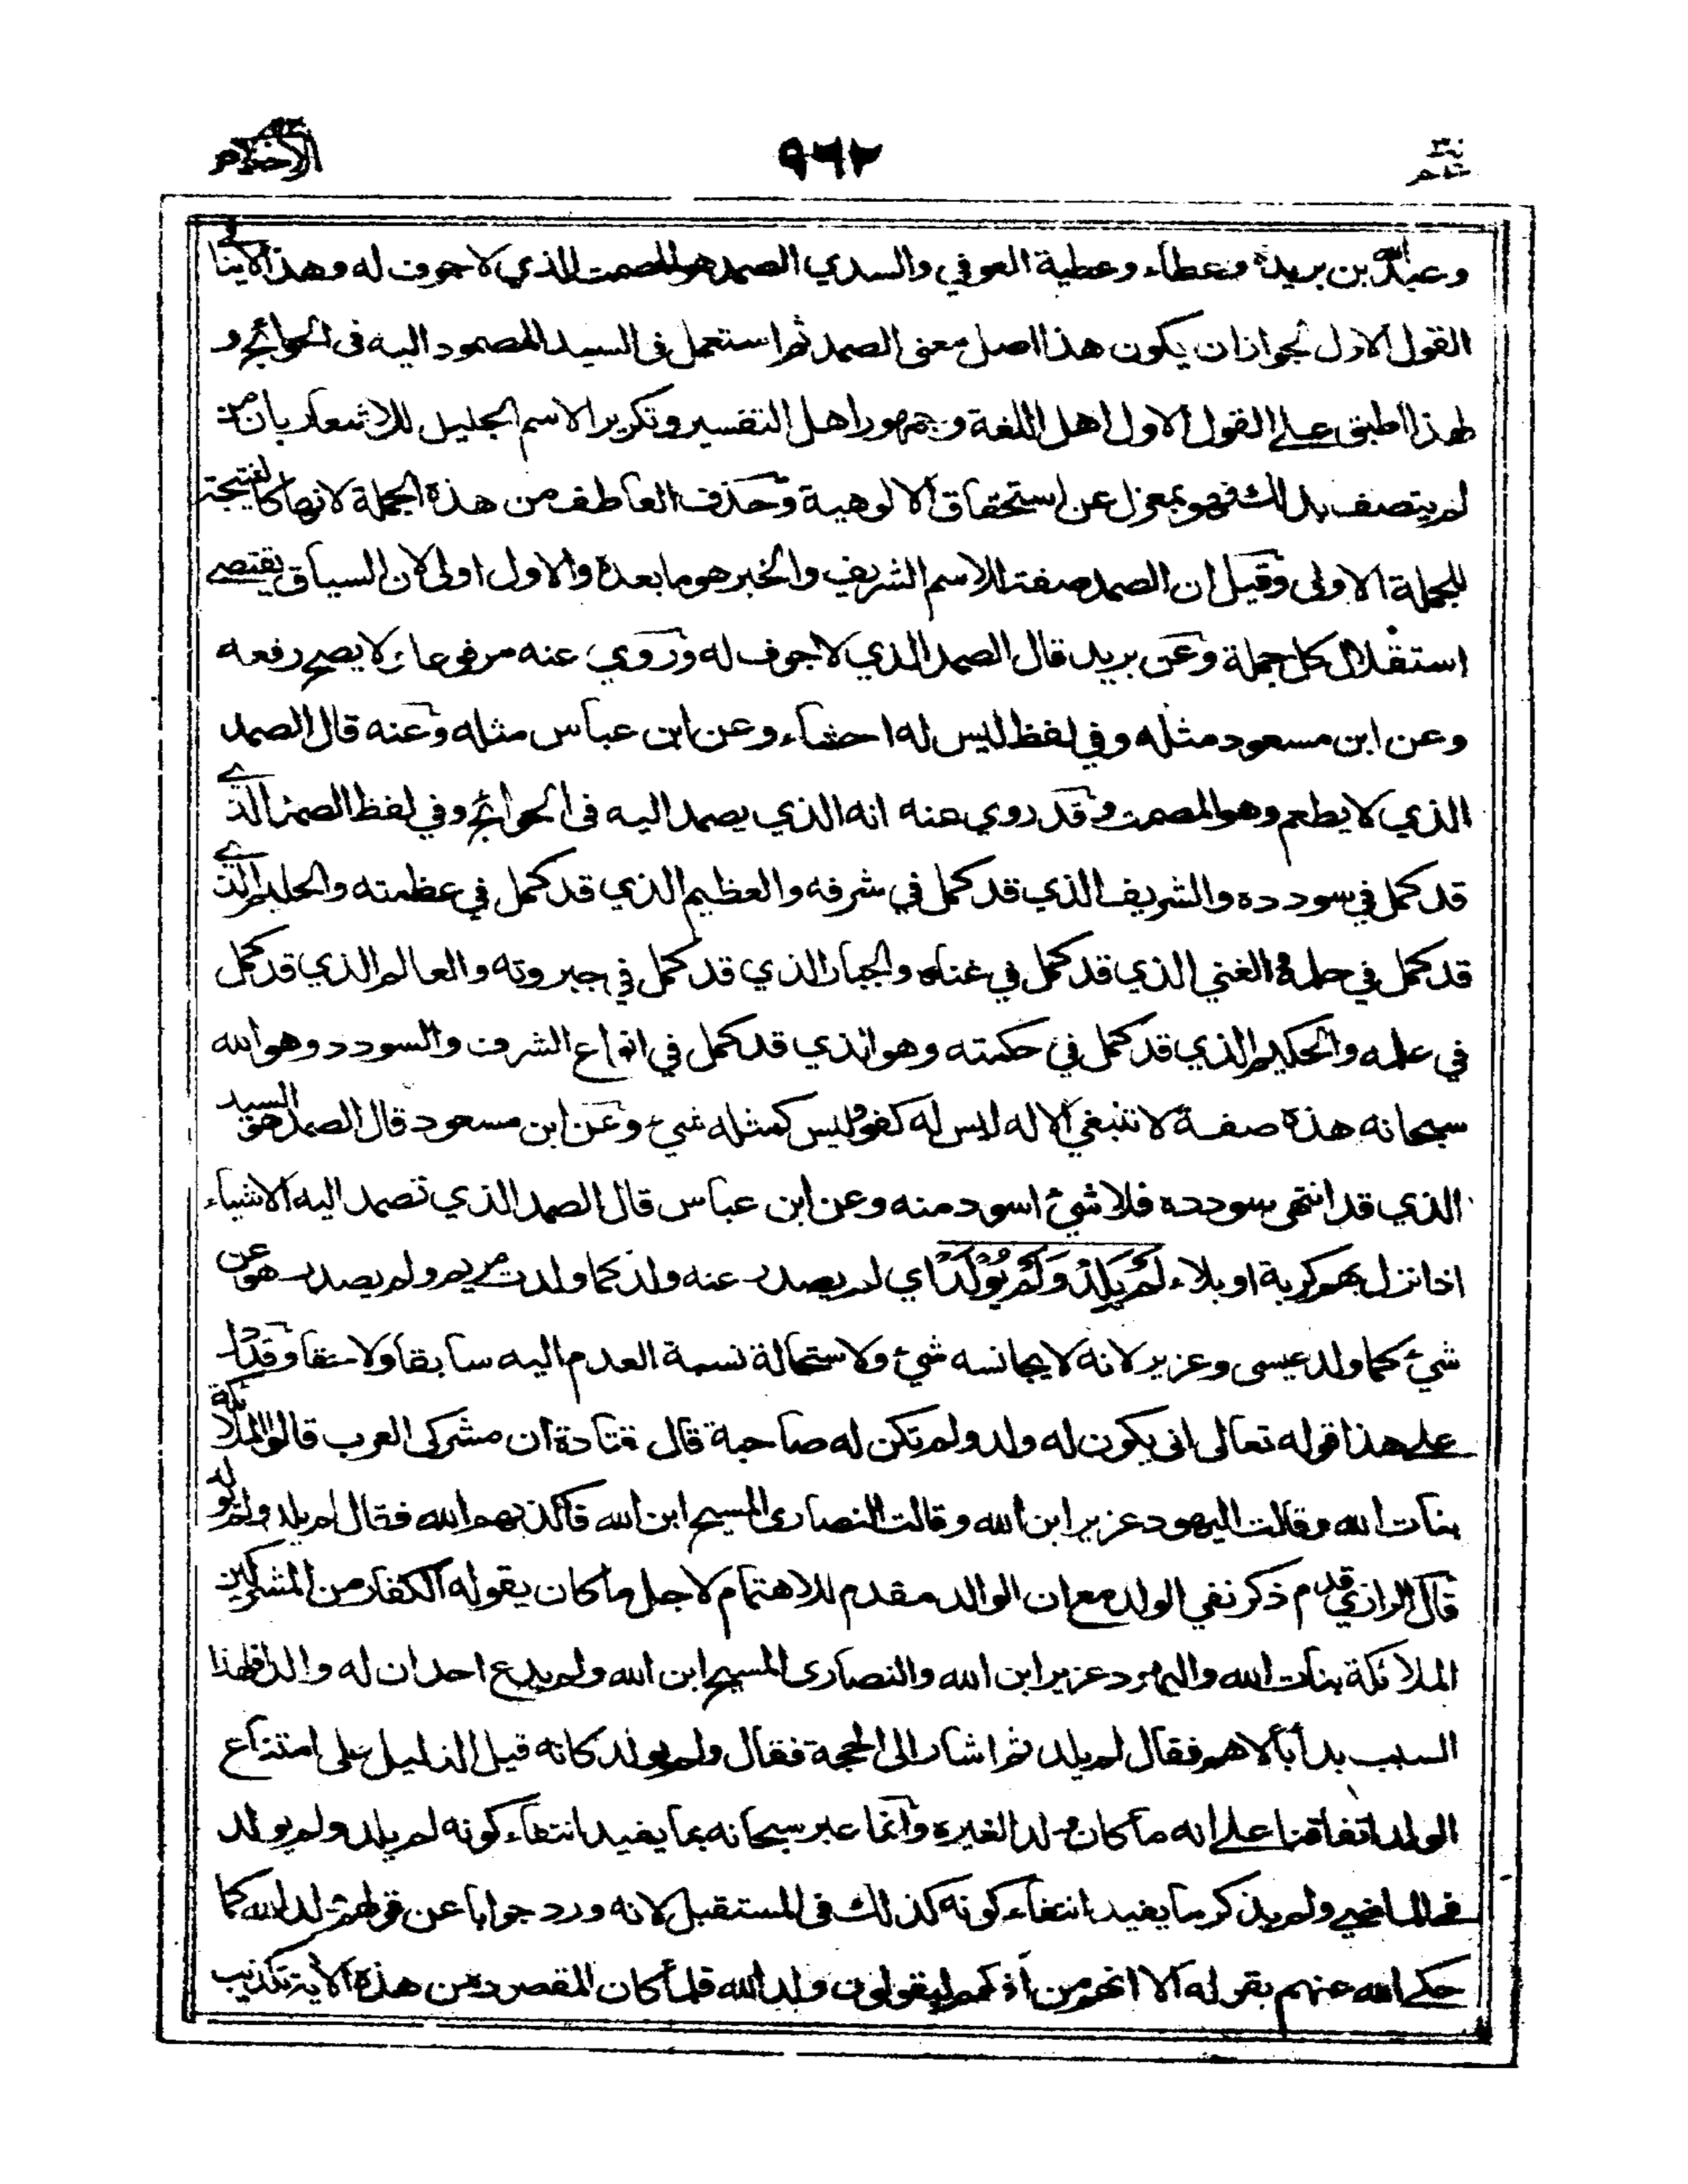 الاخلاص ٩٦٢ عم
وعبد الله بن بريدة وعطاء وعطية العوفي والسدي الصمد هو المصمت الذي لا جوف له وهذا لا ينافي
القول الاول لجواز ان يكون هذا اصل معنى الصمد ثم استعمل في السيد المصمود اليه في الحوائج و
لهذا اطبق على القول الاول اهل اللغة وجمهور اهل التفسير وتكرير الاسم الجليل للاشعار بان من
لم يتصف بذلك فهو بمعزل عن استحقاق الالوهية وحذف العاطف من هذه الجملة لانها كالنتيجة
للجملة الاولى وقيل ان الصمد صفة للاسم الشريف والخبر هو ما بعده والاول اولى لان السياق يقتضي
استقلال كل جملة وعن بريد قال الصمد الذي لا جوف له وروي عنه مرفوعا ولا يصح رفعه
وعن ابن مسعود مثله وفي لفظ ليس له احشاء وعن ابن عباس مثله وعنه قال الصمد
الذي لا يطعم وهو المصمت وقد روي عنه انه الذي يصمد اليه في الحوائج وفي لفظ الصمد الذي
قد كمل في سودده والشريف الذي قد كمل في شرفه والعظيم الذي قد كمل في عظمته والحليم الذي
قد كمل في حلمه والغني الذي قد كمل في غناه والجبار الذي قد كمل في جبروته والعالم الذي قد كمل
في علمه والحكيم الذي قد كمل في حكمته وهو الذي قد كمل في انواع الشرف والسودد وهو الله
سبحانه هذه صفة لا تنبغي الا له ليس له كفو وليس كمثله شيء وعن ابن مسعود قال الصمد هو السيد
الذي قد انتهى سودده فلا شيء اسود منه وعن ابن عباس قال الصمد الذي تصمد اليه الاشياء
اذا نزل بهم كربة او بلاء لَمْ يَلِدْ وَلَمْ يُوْلَدْ اي لم يصدر عنه ولد كما ولدت مريم ولم يصدر هو عن
شيء كما ولد عيسى وعزير لانه لا يجانسه شيء ولاستحالة نسبة العدم اليه سابقا ولاحقا وقد دل
على هذا قوله تعالى انى يكون له ولد ولم تكن له صاحبة قال قتادة ان مشركى العرب قالوا الملائكة
بنات الله وقالت اليهود عزير ابن الله وقالت النصارى المسيح ابن الله فاكذبهم الله فقال لم يلد ولم يولد
قال الرازي قدم ذكر نفي الولد مع ان الوالد مقدم للاهتمام لاجل ما كان يقوله الكفار من المشركين
الملائكة بنات الله واليهود عزير ابن الله والنصارى المسيح ابن الله ولم يدع احد ان له والدا فلهذا
السبب بدأ بالاهم فقال لم يلد ثم اشار الى الحجة فقال ولم يولد كانه قيل الدليل على امتناع
الولد اتفاقنا على انه ما كان ولدا لغيره وانما عبر سبحانه بما يفيد انتفاء كونه لم يلد ولم يولد
في الماضي ولم يذكر ما يفيد انتفاء كونه كذلك في المستقبل لانه ورد جوابا عن قولهم ولد الله كما
حكى الله عنهم بقوله الا انهم من أفكهم ليقولون ولد الله فلما كان المقصود من هذه الآية تكذيب